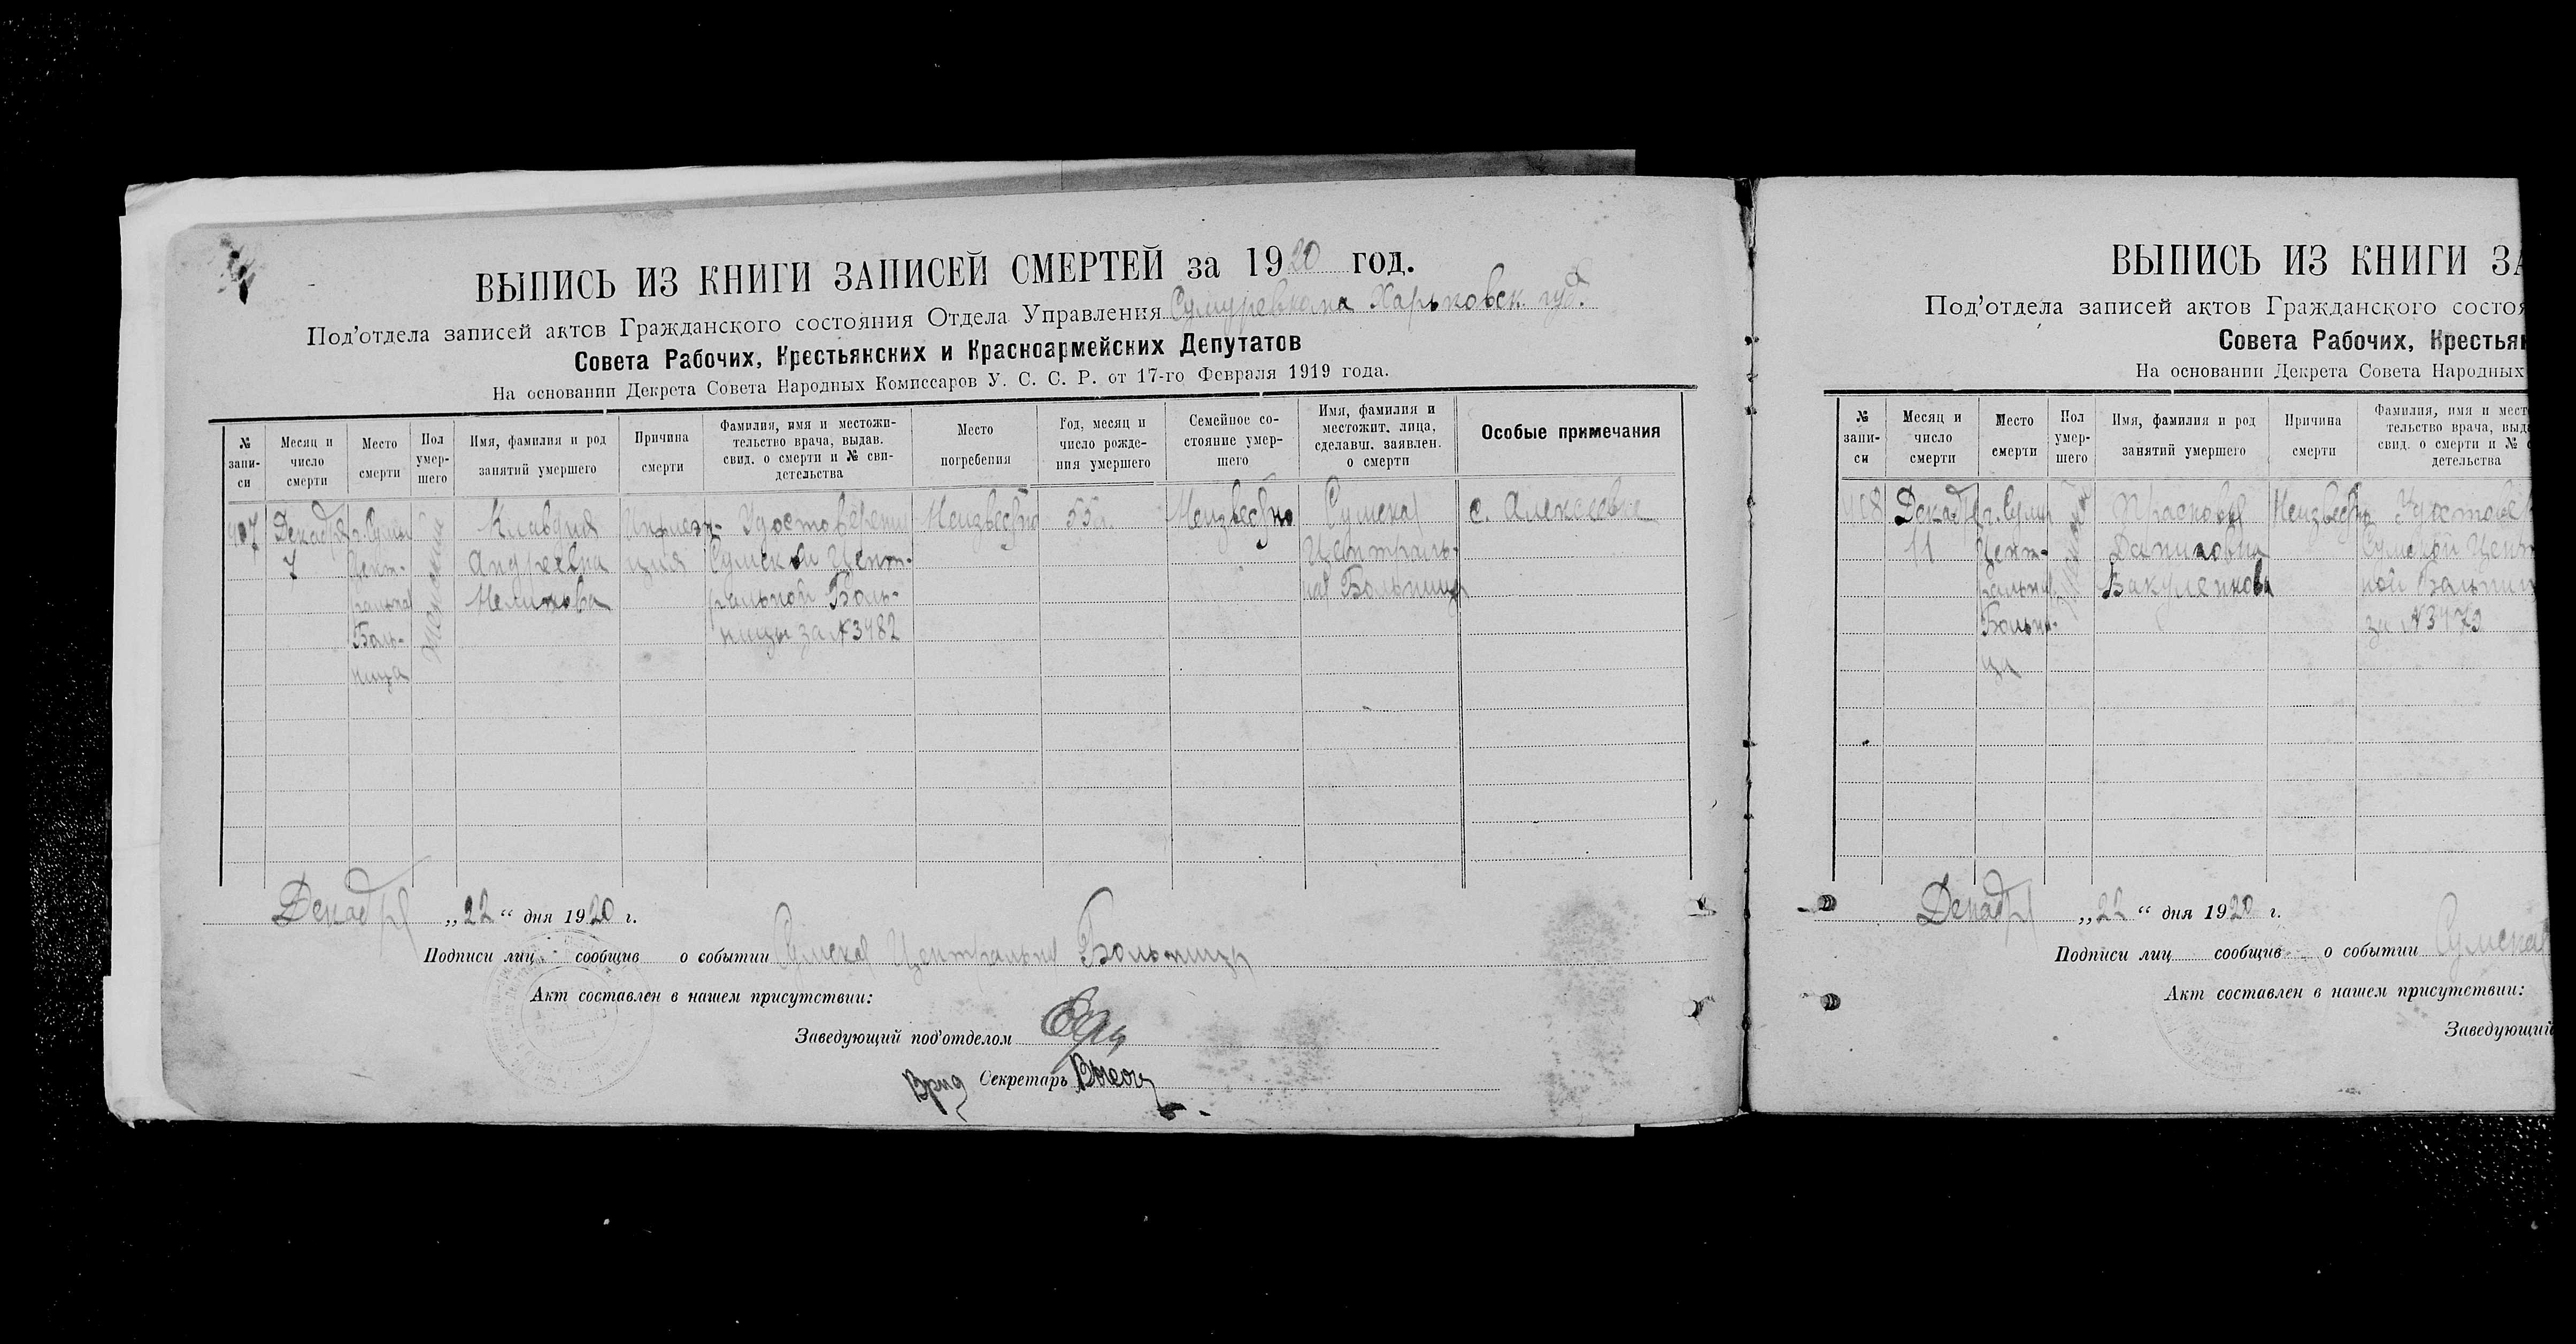 ВЫПИСЬ ИЗ КНИГИ ЗАПИСЕЙ СМЕРТЕЙ за 1920 год.
Под'отдела записей актов Гражданского состояния Отдела Управления Сумуревкома Харьковск. губ.
Совета Рабочих, Крестьянских и Красноармейских Депутатов
На основании Декрета Совета Народных Комиссаров У. С. С. Р. от 17-го Февраля 1919 года.
№ запи-
си
Месяц и
число
смерти
Место
смерти
Пол
умер-
шего
Имя, фамилия и род
занятий умершего
Причина
смерти
Фамилия, имя и местожи-
тельство врача, выдав.
свид. о смерти и № сви-
детельства
Место
погребения
Год, месяц и
число рожде-
ния умершего
Семейное со-
стояние умер-
шего
Имя, фамилия и
местожит. лица,
сделавш. заявлен.
о смерти
Особые примечания
907
Декабря
7
г. Сумы
Цент-
ральная
Боль-
ница
Женский
Клавдия
Андреевна
Удостоверение
Сумской Цент-
ральной Боль-
ницы за №3482
Неизвестно
55 л.
Неизвестно
Сумская
Централь-
ная Больница
с. Алексеевке
Декабря „22“ дня 1920 г.
Подписи лиц сообщив о событии Сумская Центральная Больница
Акт составлен в нашем присутствии:
Заведующий под'отделом
Врид Секретарь
ВЫПИСЬ ИЗ КНИГИ ЗА
Под'отдела записей актов Гражданского состоя
Совета Рабочих, Крестьян
На основании Декрета Совета Народных
№
запи-
си
Месяц и
число
смерти
Место
смерти
Пол
умер-
шего
Имя, фамилия и род
занятий умершего
Причина
смерти
Фамилия, имя и мест
тельство врача, выд
свид. о смерти и №
детельства
908
Декабря
11
г. Сумы
Цент-
ральная
Больни-
ца
Женский
Прасковья
Даниловна
Вакуленкова
Неизвестно
Удостове
Сумской Цент
ной Больни
за №3473
Декабря „22“ дня 1920 г.
Подписи лиц сообщив о событии Сумская
Акт составлен в нашем присутствии:
Заведующий